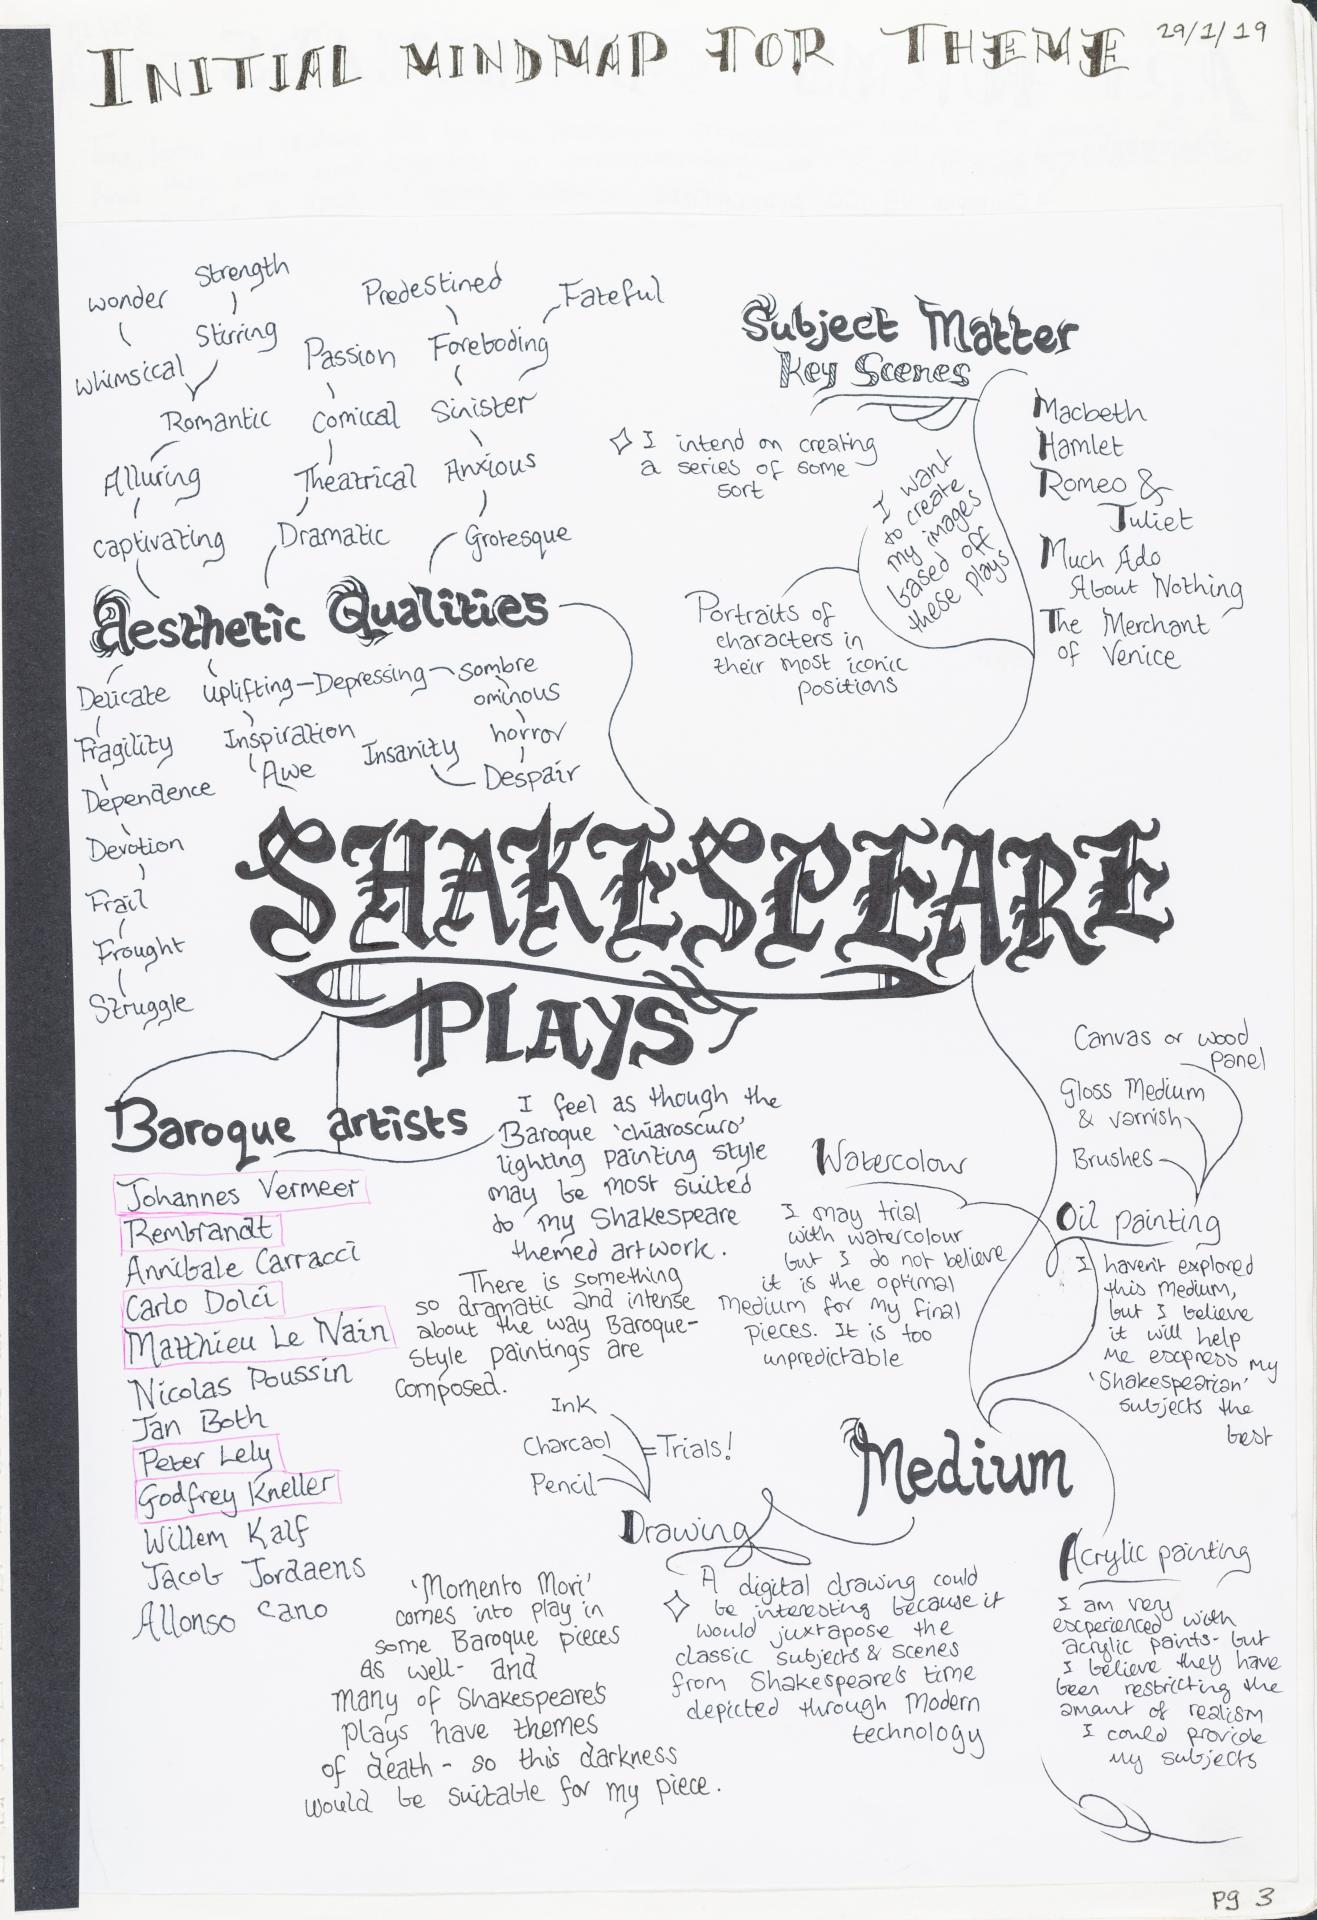 INITIAL MINDMAP FOR THEME
29/1/19
Strength
wonder
Stirring
whimsical
Romantic
Alluring
captivating
Passion
Comical
Theatrical
Dramatic
Predestined
Fateful
Foreboding
Sinister
Anxious
Grotesque
Aesthetic Qualities
Delicate
Fragility
Dependence
Devotion
Frail
Frought
Struggle
Uplifting
Depressing
Sombre
ominous
horror
Despair
Insanity
Inspiration
Awe
Subject Matter
Key Scenes
I intend on creating
a series of some
sort
I want
to create
my images
based off
these plays
Portraits of
characters in
their most iconic
positions
Macbeth
Hamlet
Romeo &
Juliet
Much Ado
About Nothing
The Merchant
of Venice
SHAKESPEARE
PLAYS
Baroque artists
Johannes Vermeer
Rembrandt
Annibale Carracci
Carlo Dolci
Matthieu Le Nain
Nicolas Poussin
Jan Both
Peter Lely
Godfrey Kneller
Willem Kalf
Jacob Jordaens
Allonso Cano
I feel as though the
Baroque 'chiaroscuro'
lighting painting style
may be most suited
to my Shakespeare
themed artwork.
There is something
so dramatic and intense
about the way Baroque-
style paintings are
composed.
'Momento Mori'
comes into play in
some Baroque pieces
as well- and
many of Shakespeare's
plays have themes
of death - so this darkness
would be suitable for my piece.
Medium
Watercolour
I may trial
with watercolour
but I do not believe
it is the optimal
medium for my final
pieces. It is too
unpredictable
Canvas or wood
panel
Gloss Medium
& varnish
Brushes
Oil painting
I haven't explored
this medium,
but I believe
it will help
me express my
'Shakespearian'
subjects the
best
Ink
Charcaol
Pencil
=Trials!
Drawing
A digital drawing could
be interesting because it
would juxtapose the
classic subjects & scenes
from Shakespeare's time
depicted through Modern
technology
Acrylic painting
I am very
experienced with
acrylic paints- but
I believe they have
been restricting the
amant of realism
I could provide
my subjects
pg 3